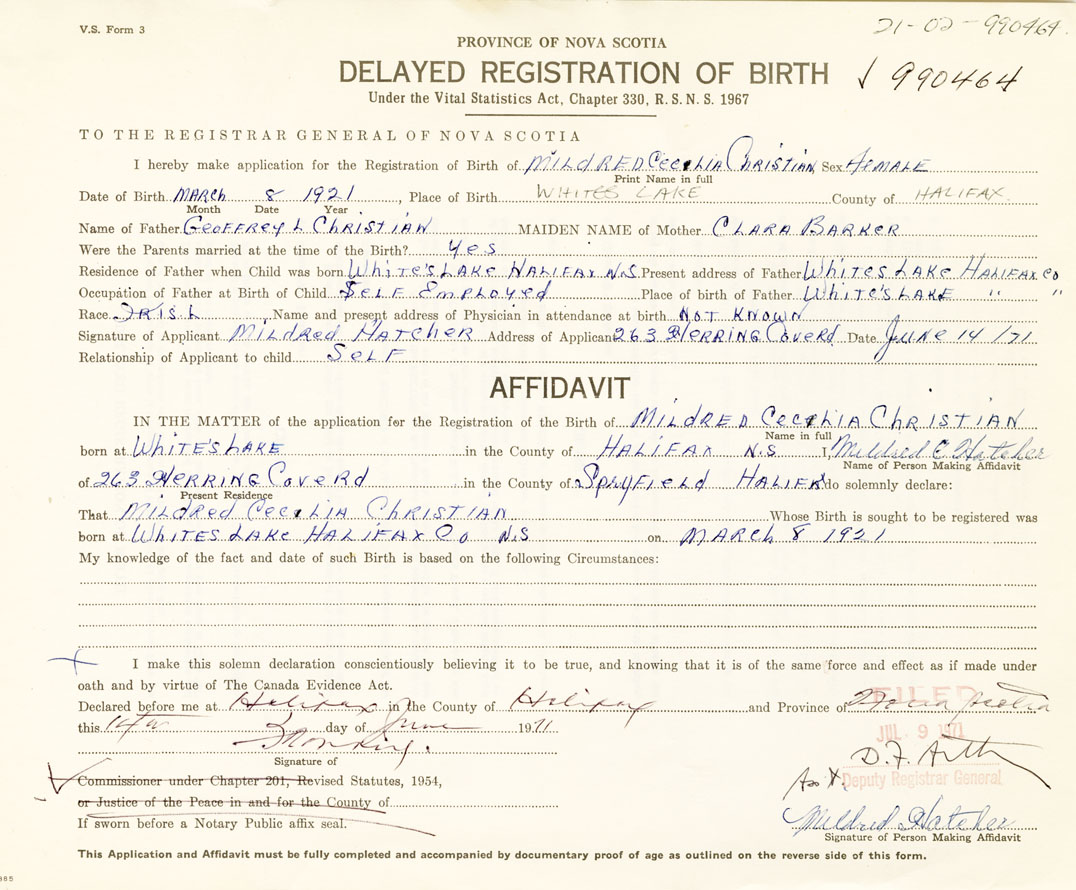 V.S. Form 3
21-02-990464
PROVINCE OF NOVA SCOTIA
DELAYED REGISTRATION OF BIRTH
990464
Under the Vital Statistics Act, Chapter 330, R.S.N.S. 1967
TO THE REGISTRAR GENERAL OF NOVA SCOTIA
I hereby make application for the Registration of Birth of MILDRED CECELIA CHRISTIAN Sex FEMALE
Print Name in full
Date of Birth MARCH 8 1921, Place of Birth WHITES LAKE County of HALIFAX
Month Date Year
Name of Father GEOFFREY L CHRISTIAN MAIDEN NAME of Mother CLARA BARKER
Were the Parents married at the time of the Birth? Yes
Residence of Father when Child was born WHITE'S LAKE HALIFAX N.S Present address of Father WHITES LAKE HALIFAX CO
Occupation of Father at Birth of Child SELF EMPLOYED Place of birth of Father WHITE'S LAKE " "
Race Name and present address of Physician in attendance at birth NOT KNOWN
Signature of Applicant MILDRED HATCHER Address of Applicant 263 HERRING COVE RD Date JUNE 14/71
Relationship of Applicant to child SELF
AFFIDAVIT
IN THE MATTER of the application for the Registration of the Birth of MILDRED CECELIA CHRISTIAN
Name in full
born at WHITE'S LAKE in the County of HALIFAX N.S I, Mildred C Hatcher
Name of Person Making Affidavit
of 263 HERRING COVE RD in the County of SPRYFIELD HALIFX do solemnly declare:
Present Residence
That MILDRED CECELIA CHRISTIAN Whose Birth is sought to be registered was
born at WHITES LAKE HALIFAX Co N.S on MARCH 8 1921
My knowledge of the fact and date of such Birth is based on the following Circumstances:
I make this solemn declaration conscientiously believing it to be true, and knowing that it is of the same force and effect as if made under
oath and by virtue of The Canada Evidence Act.
Declared before me at Halifax in the County of Halifax and Province of Nova Scotia
FILED
this 14th day of June 1971
JUL 9 1971
Signature of
Deputy Registrar General
Commissioner under Chapter 201, Revised Statutes, 1954,
or Justice of the Peace in and for the County of
If sworn before a Notary Public affix seal.
Mildred Hatcher
Signature of Person Making Affidavit
This Application and Affidavit must be fully completed and accompanied by documentary proof of age as outlined on the reverse side of this form.